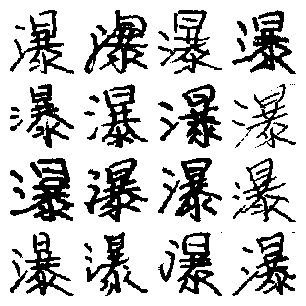 瀑瀑瀑瀑
瀑瀑瀑瀑
瀑瀑瀑瀑
瀑瀑瀑瀑